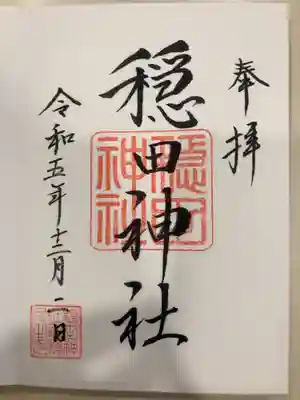 奉拝
穏田神社
穏田
神社
令和五年十二月一日